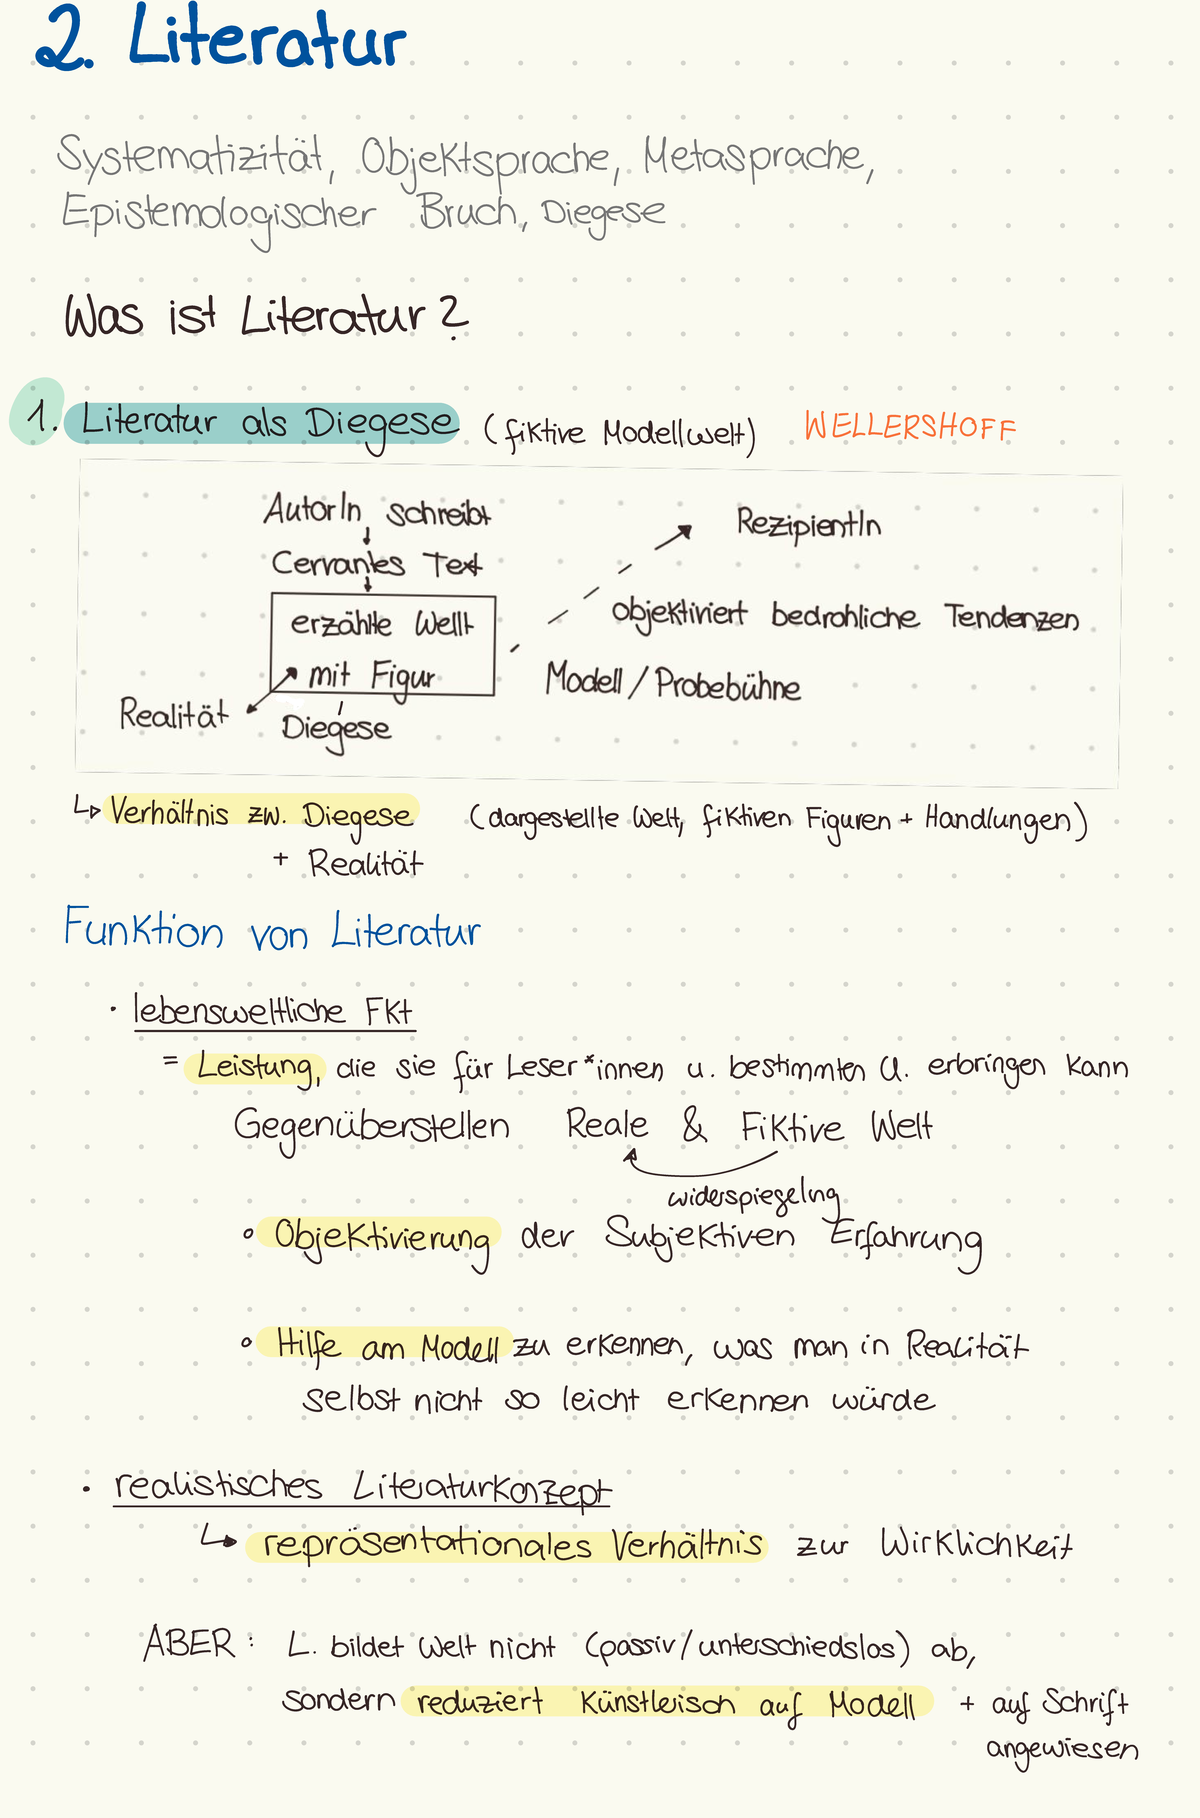 2. Literatur
Systematizität, Objektsprache, Metasprache,
Epistemologischer Bruch, Diegese
Was ist Literatur?
1. Literatur als Diegese (fiktive Modellwelt) WELLERSHOFF
AutorIn schreibt
Cervantes Text
erzählte Wellt
mit Figur
Realität
Diegese
RezipientIn
objektiviert bedrohliche Tendenzen
Modell / Probebühne
↳ Verhältnis zw. Diegese (dargestellte Welt, fiktiven Figuren + Handlungen)
+ Realität
Funktion von Literatur
· lebensweltliche FKt
= Leistung, die sie für Leser*innen u. bestimmten U. erbringen kann
Gegenüberstellen Reale & Fiktive Welt
widerspiegelng
° Objektivierung der Subjektiven Erfahrung
° Hilfe am Modell zu erkennen, was man in Realität
selbst nicht so leicht erkennen würde
· realistisches Literaturkonzept
↳ repräsentationales Verhältnis zur Wirklichkeit
ABER: L. bildet Welt nicht (passiv/unterschiedslos) ab,
sondern reduziert Künstlerisch auf Modell + auf Schrift
angewiesen